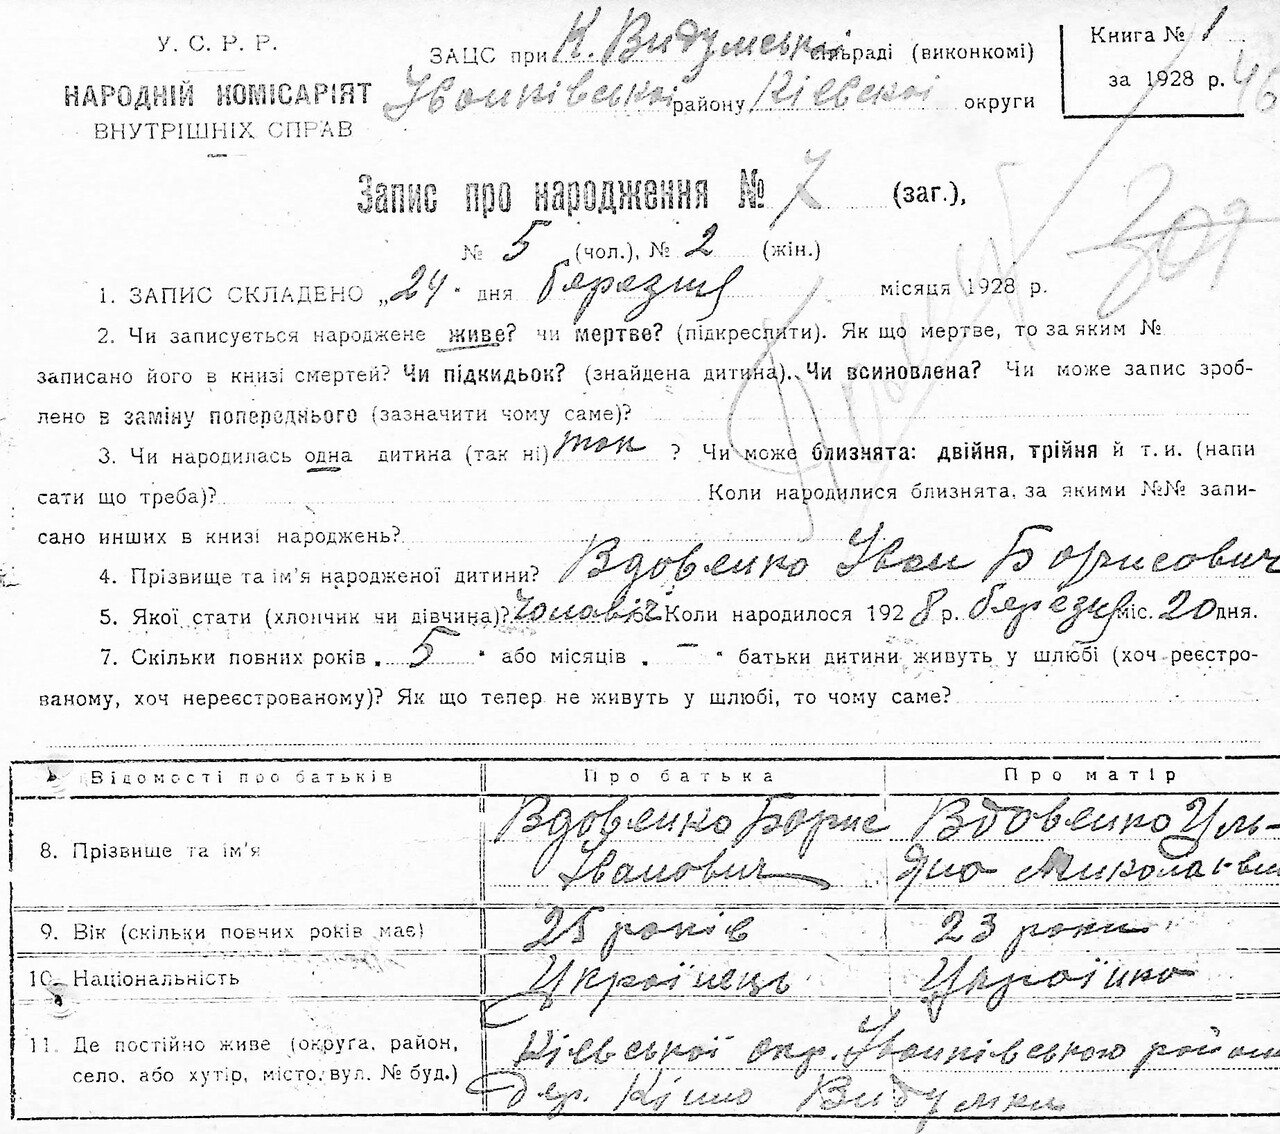 У. С. Р. Р.
НАРОДНІЙ КОМІСАРІЯТ
ВНУТРІШНІХ СПРАВ
ЗАЦС при К. Видумській сільраді (виконкомі)
Іванківської району Київської округи
Книга № 1
за 1928 р. 46
Запис про народження № 7 (заг.),
307
№ 5 (чол.), № 2 (жін.)
1. ЗАПИС СКЛАДЕНО „24" дня березня місяця 1928 р.
2. Чи записується народжене живе? чи мертве? (підкреслити). Як що мертве, то за яким №
записано його в книзі смертей? Чи підкидьок? (знайдена дитина). Чи всиновлена? Чи може запис зроб-
лено в заміну попереднього (зазначити чому саме)?
3. Чи народилась одна дитина (так ні) так ? Чи може близнята: двійня, трійня й т. и. (напи
сати що треба)? Коли народилися близнята, за якими №№ запи-
сано инших в книзі народжень?
4. Прізвище та ім'я народженої дитини? Вдовенко Іван Борисович
5. Якої стати (хлопчик чи дівчина)? чоловіч Коли народилося 1928 р. березня міс. 20 дня.
7. Скільки повних років „ 5 " або місяців „ — " батьки дитини живуть у шлюбі (хоч реєстро-
ваному, хоч нереєстрованому)? Як що тепер не живуть у шлюбі, то чому саме?
Відомості про батьків Про батька Про матір
8. Прізвище та ім'я Вдовенко Борис Іванович Вдовенко Уль-
яна Миколаївн
9. Вік (скільки повних років має) 25 років 23 роки
10. Національність Українець Українка
11. Де постійно живе (округа, район, Київської окр. Іванківського район
село, або хутір, місто, вул. № буд.) дер. Кіно Видумка